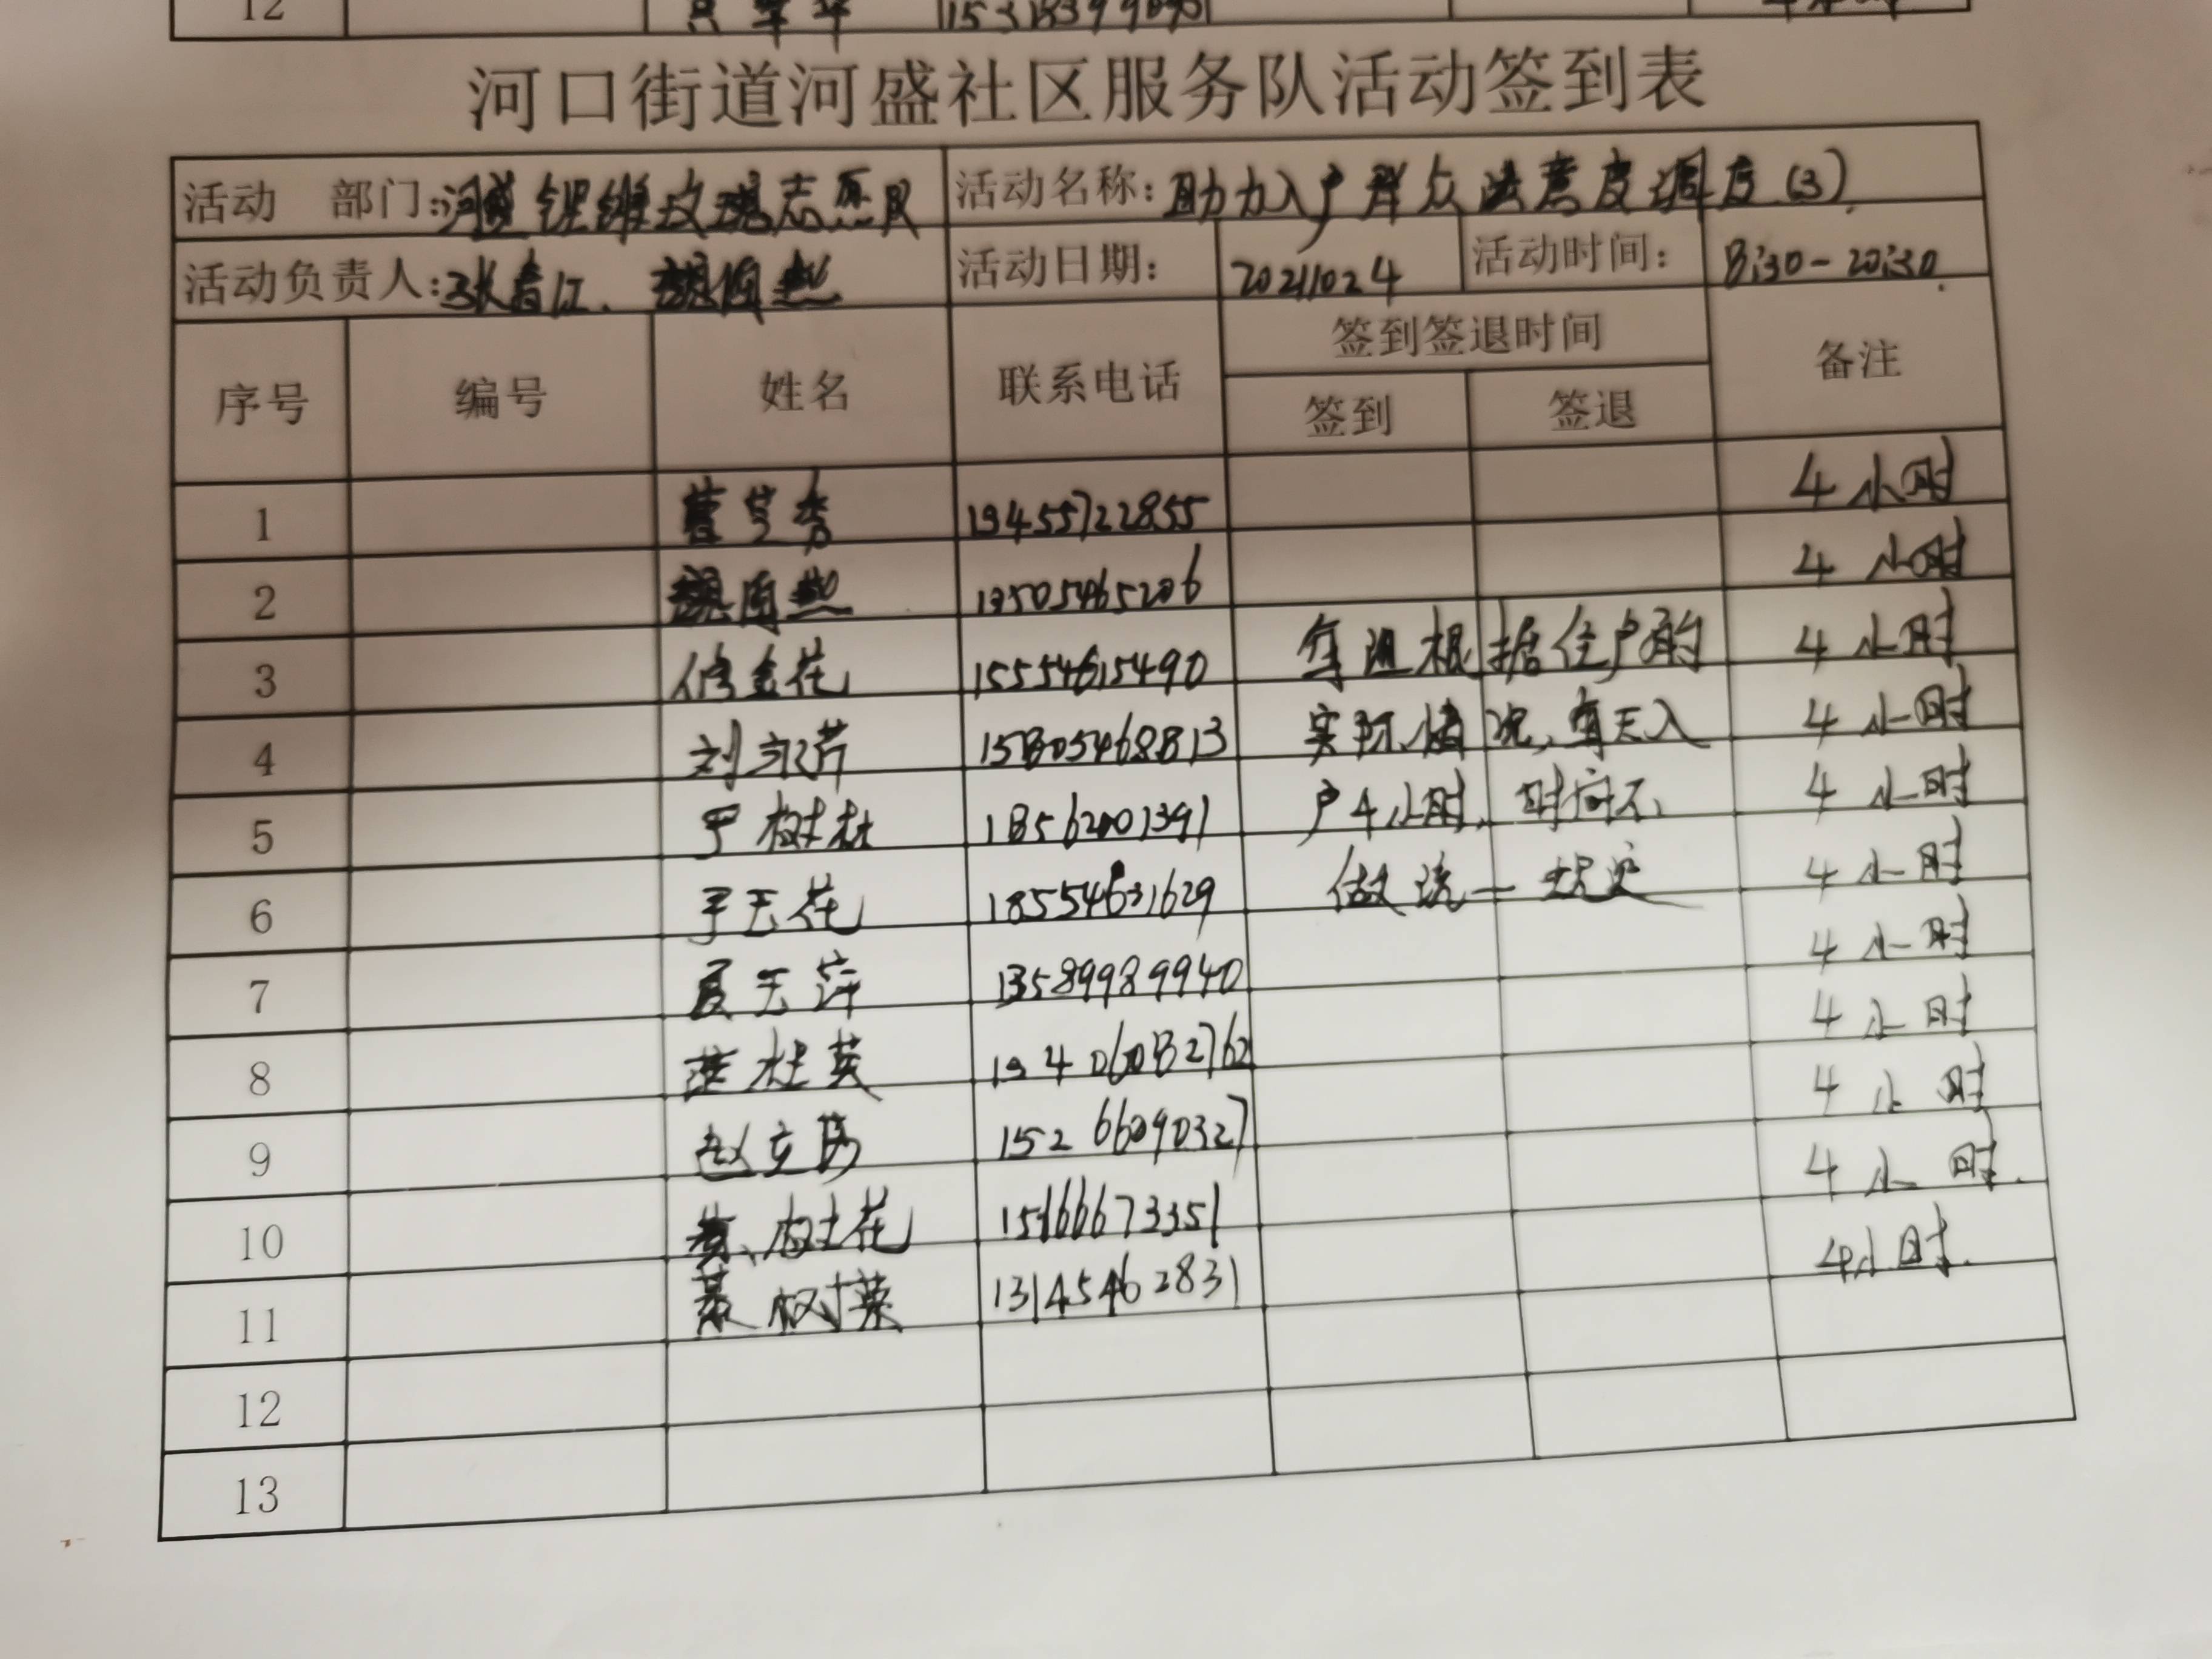 12
河口街道河盛社区服务队活动签到表
活动 部门: 志愿队 活动名称: 助力入户群众满意度调查(3)
活动负责人: 张春江、 活动日期: 20211024 活动时间: 8:30-20:30
序号 编号 姓名 联系电话 签到签退时间 备注
签到 签退
1 19455722855 4小时
2 13505465206 4小时
3 15554615490 每组根据住户的 4小时
4 刘永芹 15805468813 实际情况,每天入 4小时
5 于树林 18562001391 户4小时,时间不 4小时
6 于玉花 18554631629 做统一规定 4小时
7 13589989940 4小时
8 桂英 4小时
9 赵立 15266090327 4小时
10 树花 15166673351 4小时
11 綦树荣 13145462831 4小时
12
13